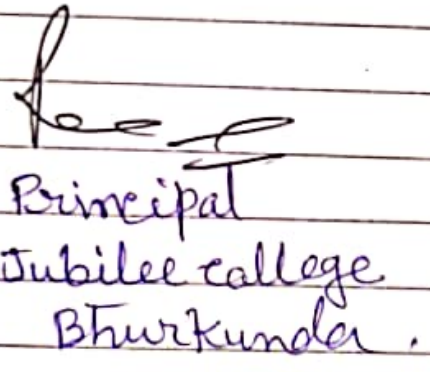 Principal
Jubilee college
Bhurkunda.